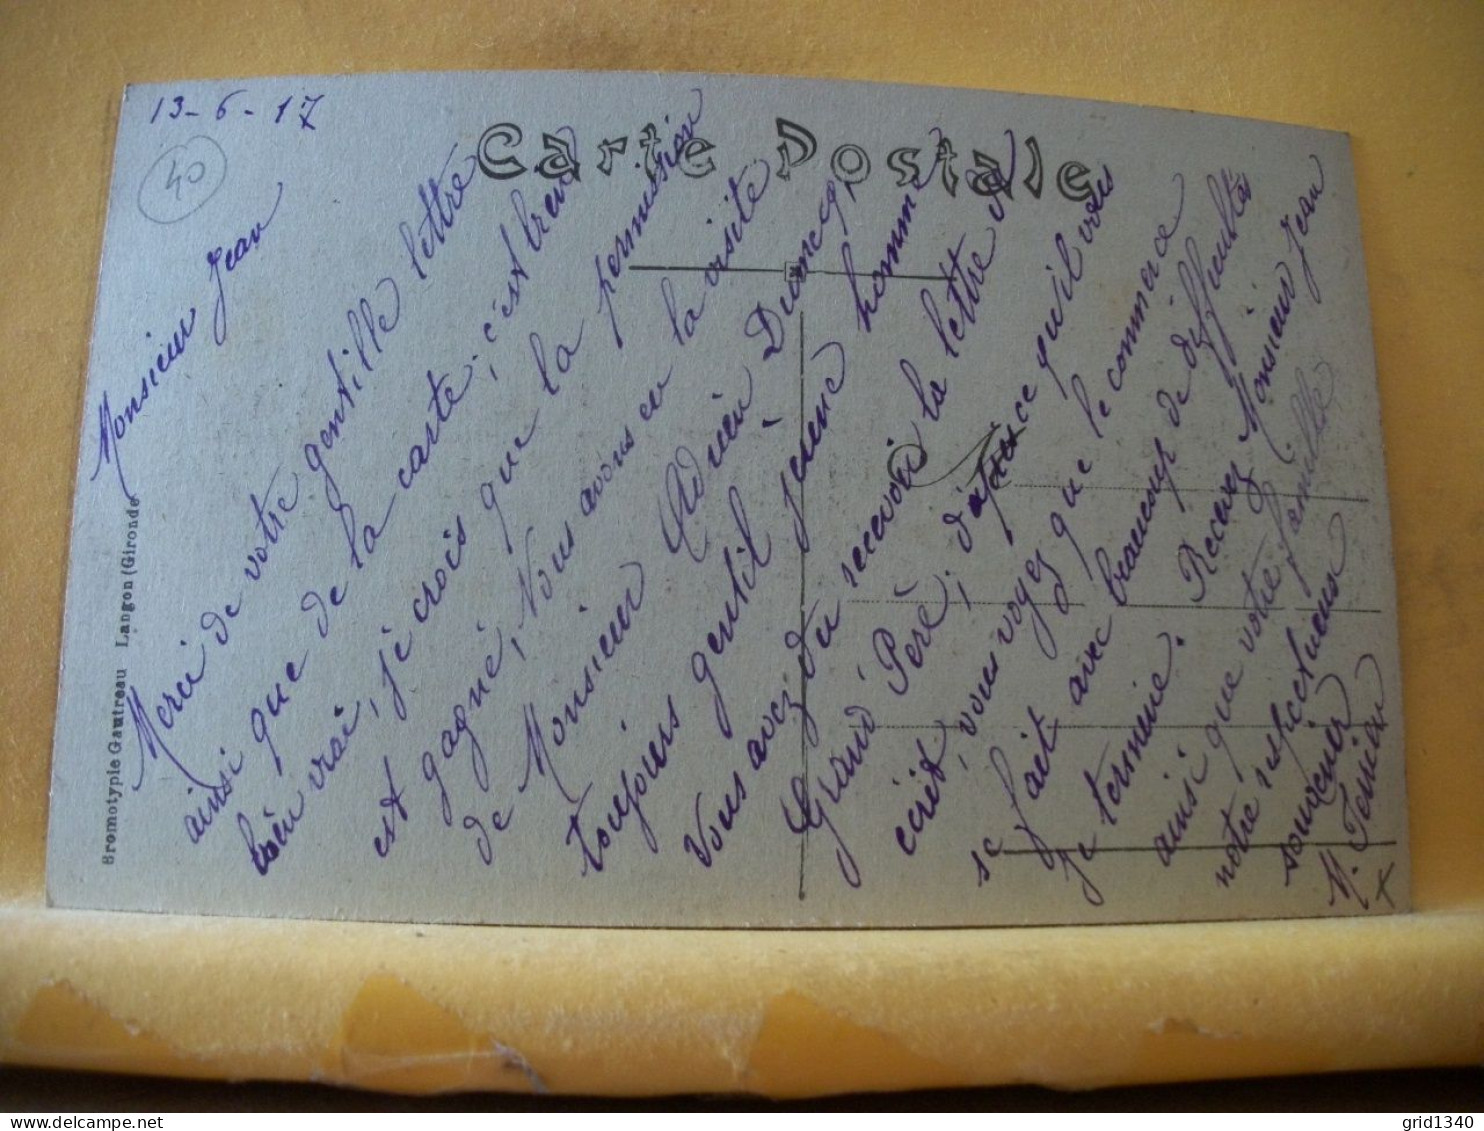 13-6-17
40
Carte Postale
Monsieur Jean
Merci de votre gentille lettre
ainsi que de la carte ; c'est bien
bien vrai, je crois que la permission
est gagné, Nous avons eu la visite
de Monsieur Adrien
toujours gentil jeune homme
Vous avez du recevoir la lettre de
Grand Père, d'après ce qu'il vous
écrit, vous voyez que le commerce
se fait avec beaucoup de difficultés
je termine. Recevez Monsieur Jean
ainsi que votre famille
notre respectueux
souvenir
M.
Bromotypie Gautreau Langon (Gironde)
grid1340